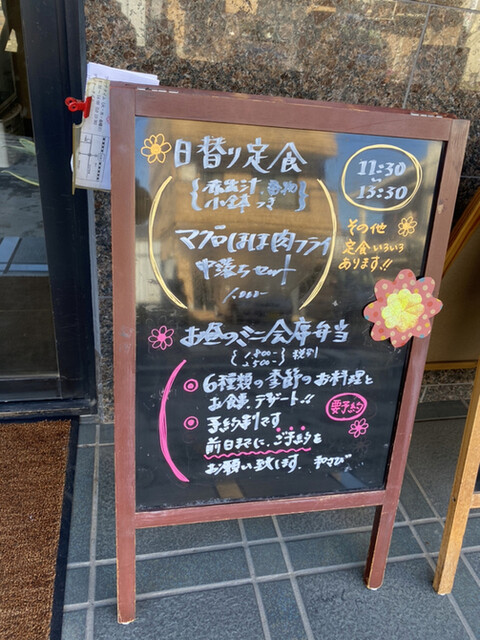 日替り定食
11:30
13:30
小鉢つき
マグロほほ肉フライ
中落ちセット
その他
定食いろいろ
あります!!
お昼のミニ会席弁当
税別
6種類の季節のお料理と
お食事、デザート!!
要予約
予約制です
前日までに、ご予約を
お願い致します。わさび